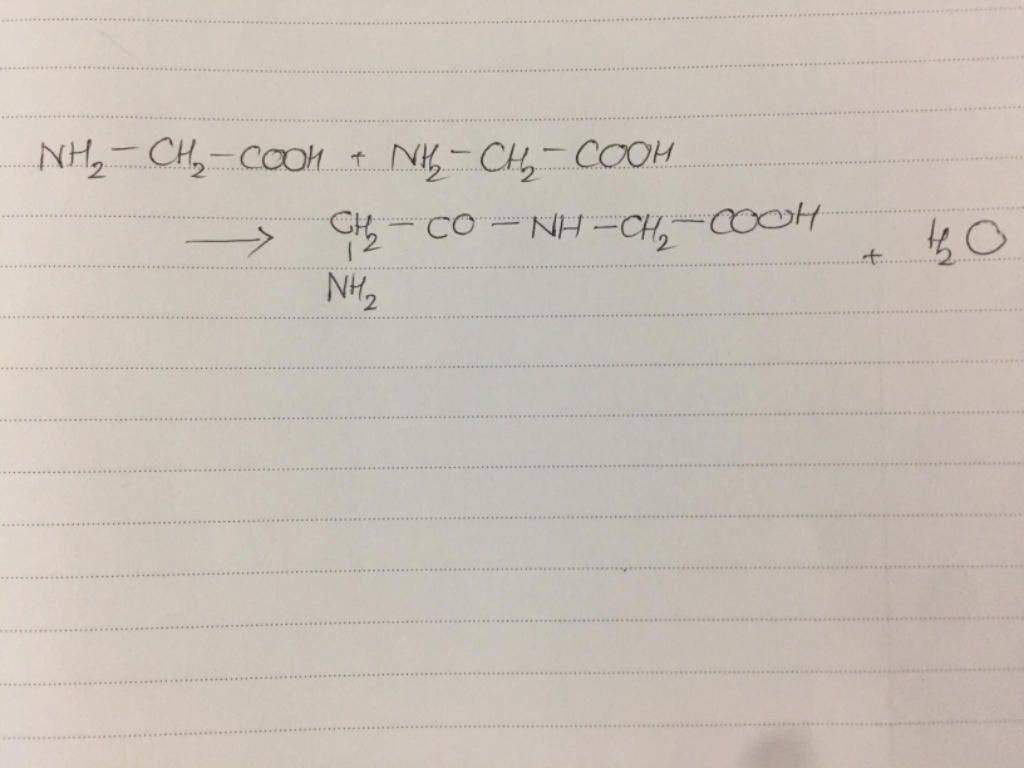 NH₂ – CH₂ – COOH + NH₂ – CH₂ – COOH
⟶ CH₂ – CO – NH – CH₂ – COOH + H₂O
|
NH₂